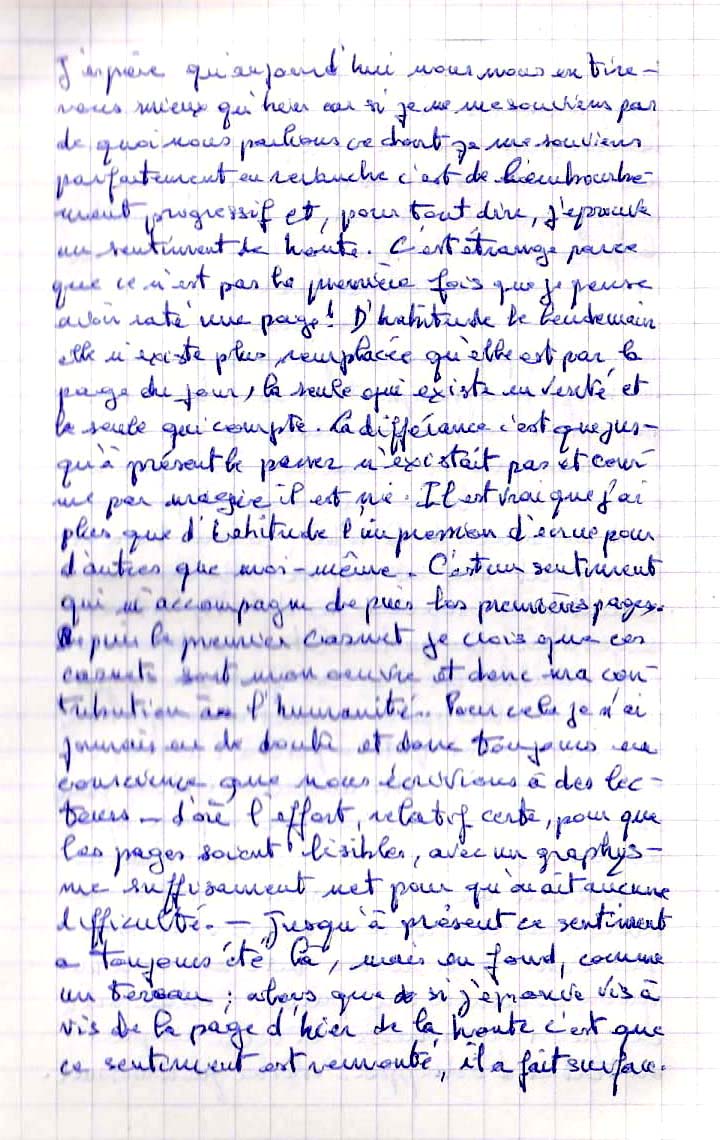 J'espère qu'aujourd'hui nous nous en tire-
rons mieux qu'hier car si je ne me souviens pas
de quoi nous parlions ce dont je me souviens
parfaitement en revanche c'est de l'embourbe-
ment progressif et, pour tout dire, j'éprouve
un sentiment de honte. C'est étrange parce
que ce n'est pas la première fois que je pense
avoir raté une page! D'habitude le lendemain
elle n'existe plus, remplacée qu'elle est par la
page du jour, la seule qui existe en vérité et
la seule qui compte. La différance c'est que jus-
qu'à présent le passé n'existait pas et com-
me par magie il est né. Il est vrai que j'ai
plus que d'habitude l'impression d'écrire pour
d'autres que moi-même. C'est un sentiment
qui m'accompagne depuis les premières pages.
Depuis le premier carnet je crois que ces
carnets sont mon oeuvre et donc ma con-
tribution à l'humanité. Pour cela je n'ai
jamais eu de doute et donc toujours eu
conscience que nous écrivions à des lec-
teurs — d'où l'effort, relatif certe, pour que
les pages soient lisibles, avec un graphys-
me suffisament net pour qu'on ait aucune
difficulté. — Jusqu'à présent ce sentiment
a toujours été là, mais en fond, comme
un terreau ; alors que si j'éprouve vis à
vis de la page d'hier de la honte c'est que
ce sentiment est remonté, il a fait surface.